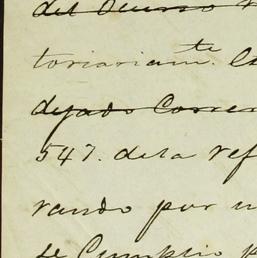 del Ocurso
toriariamte.
dejado Correr
547. dela ref
rando por u
se Cumplio p